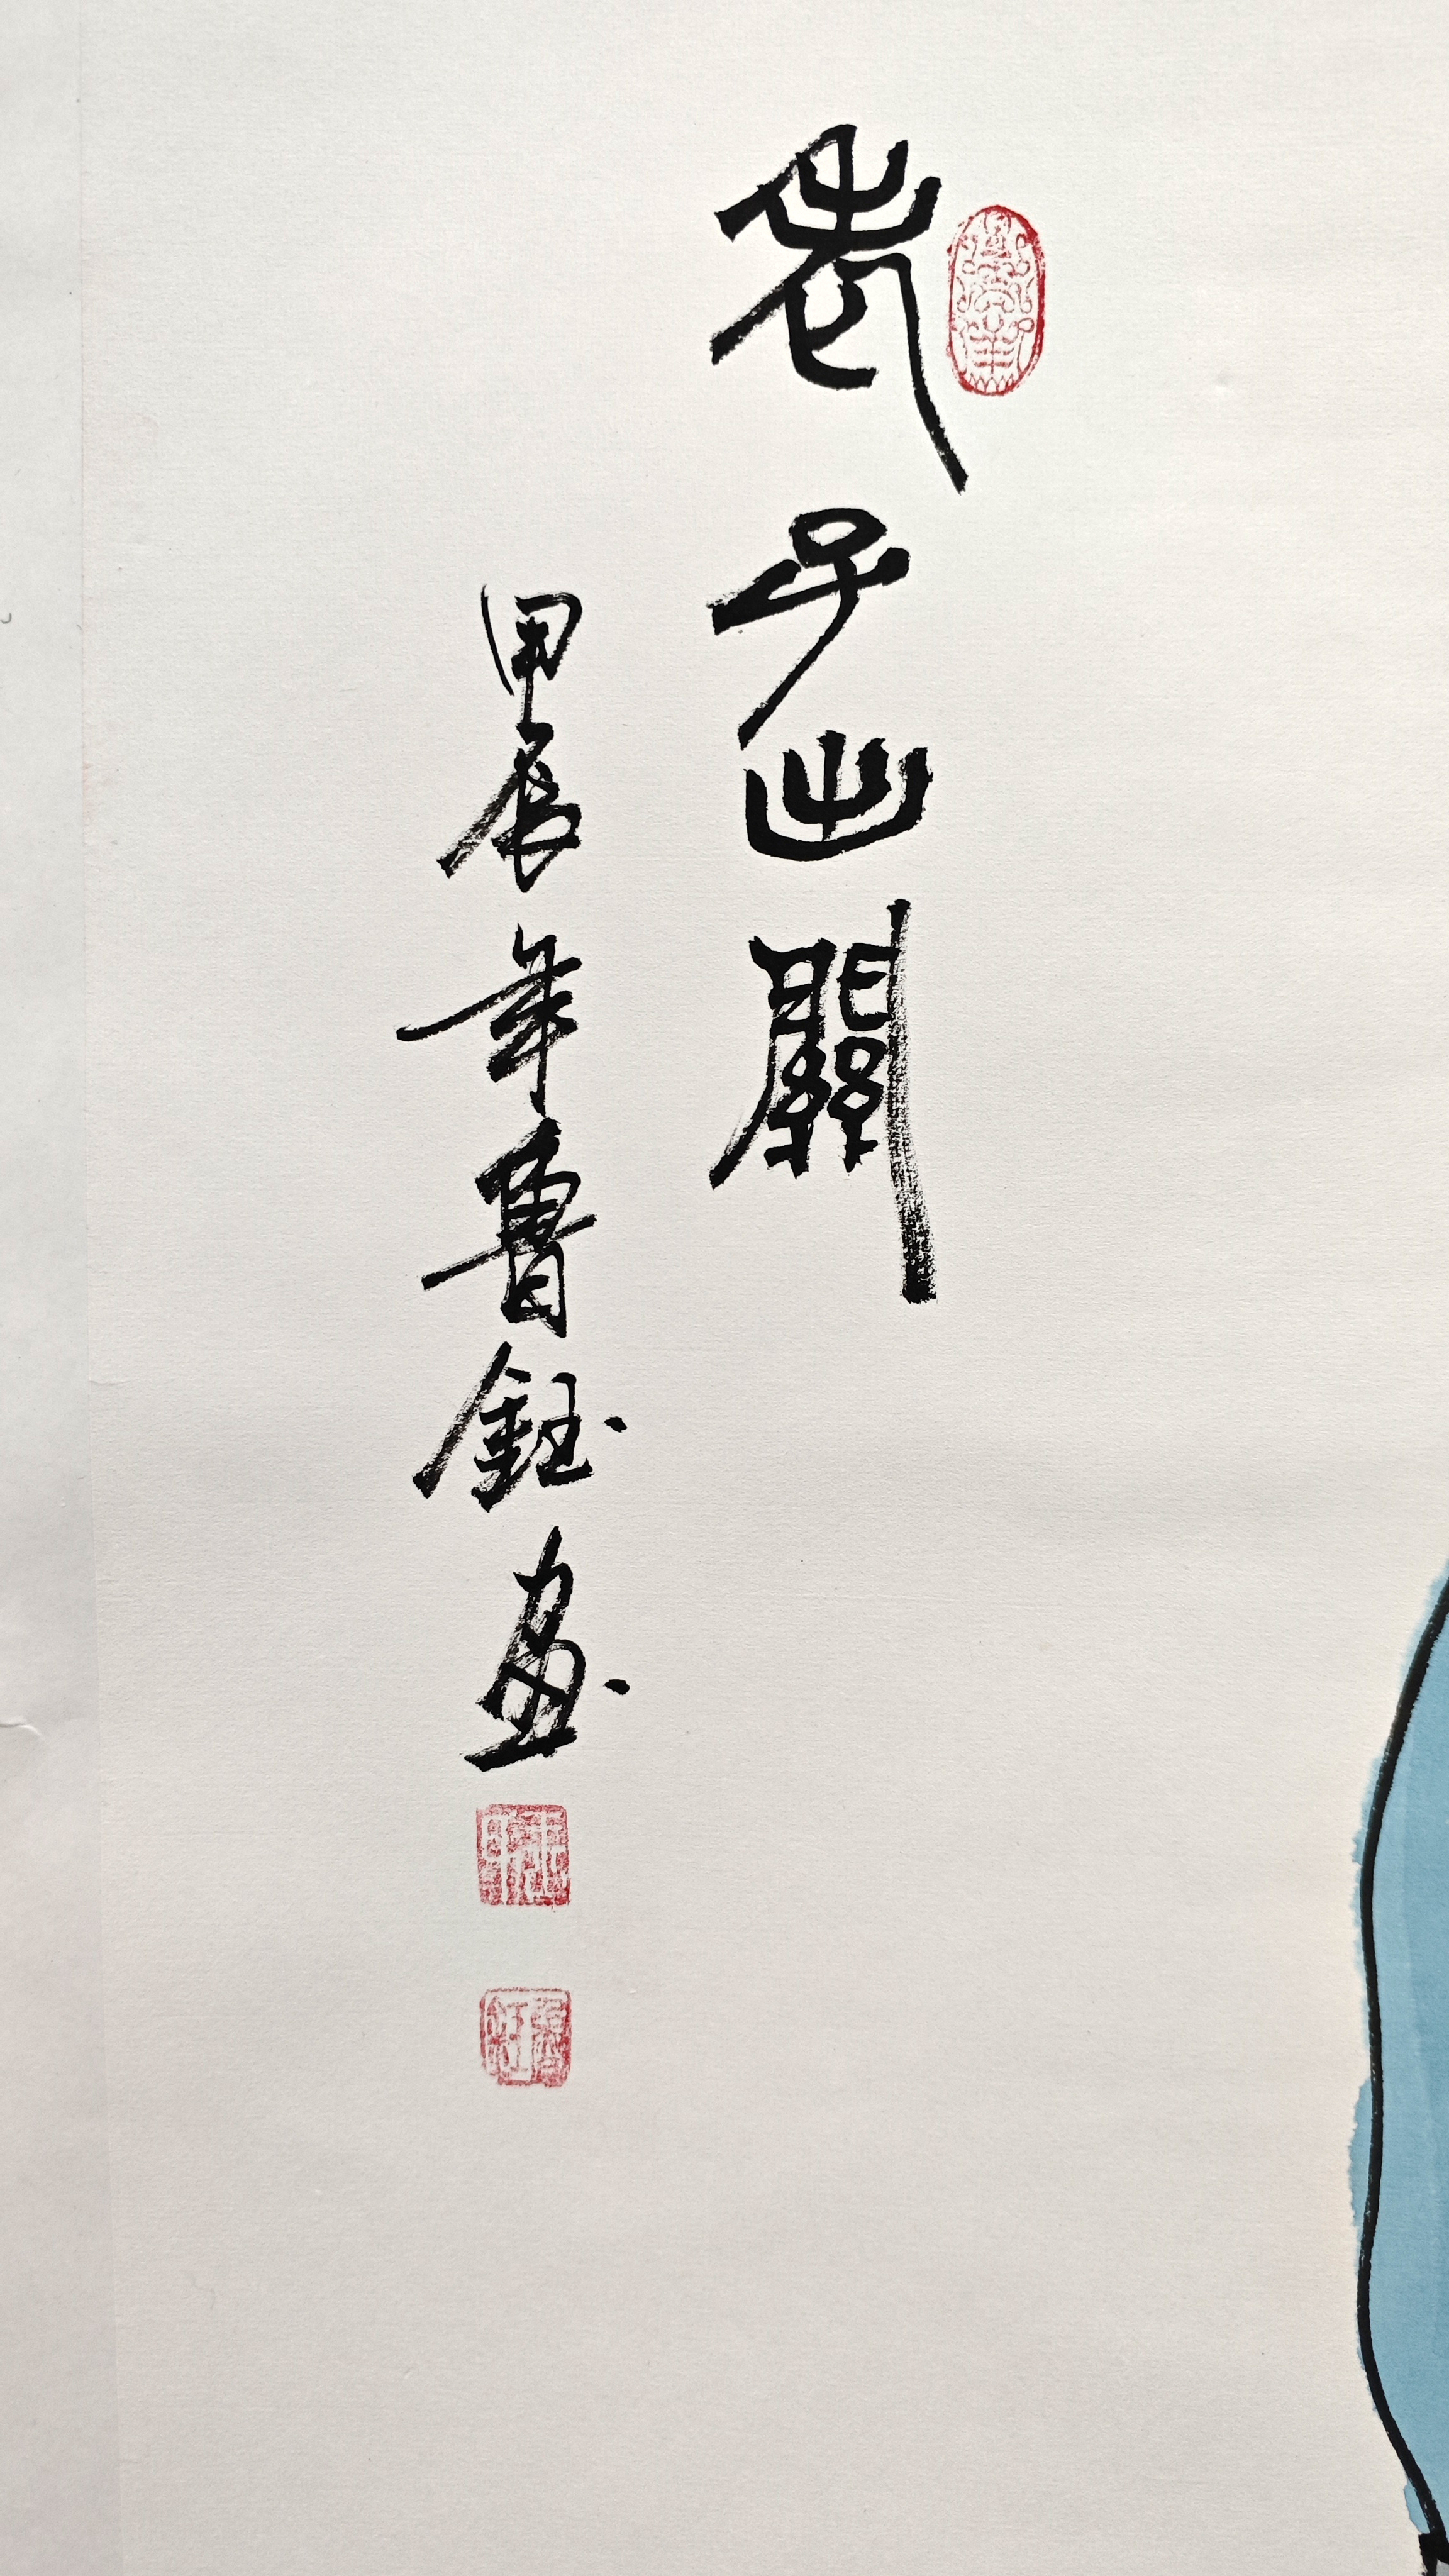 老子出關
甲辰年魯鈺畫